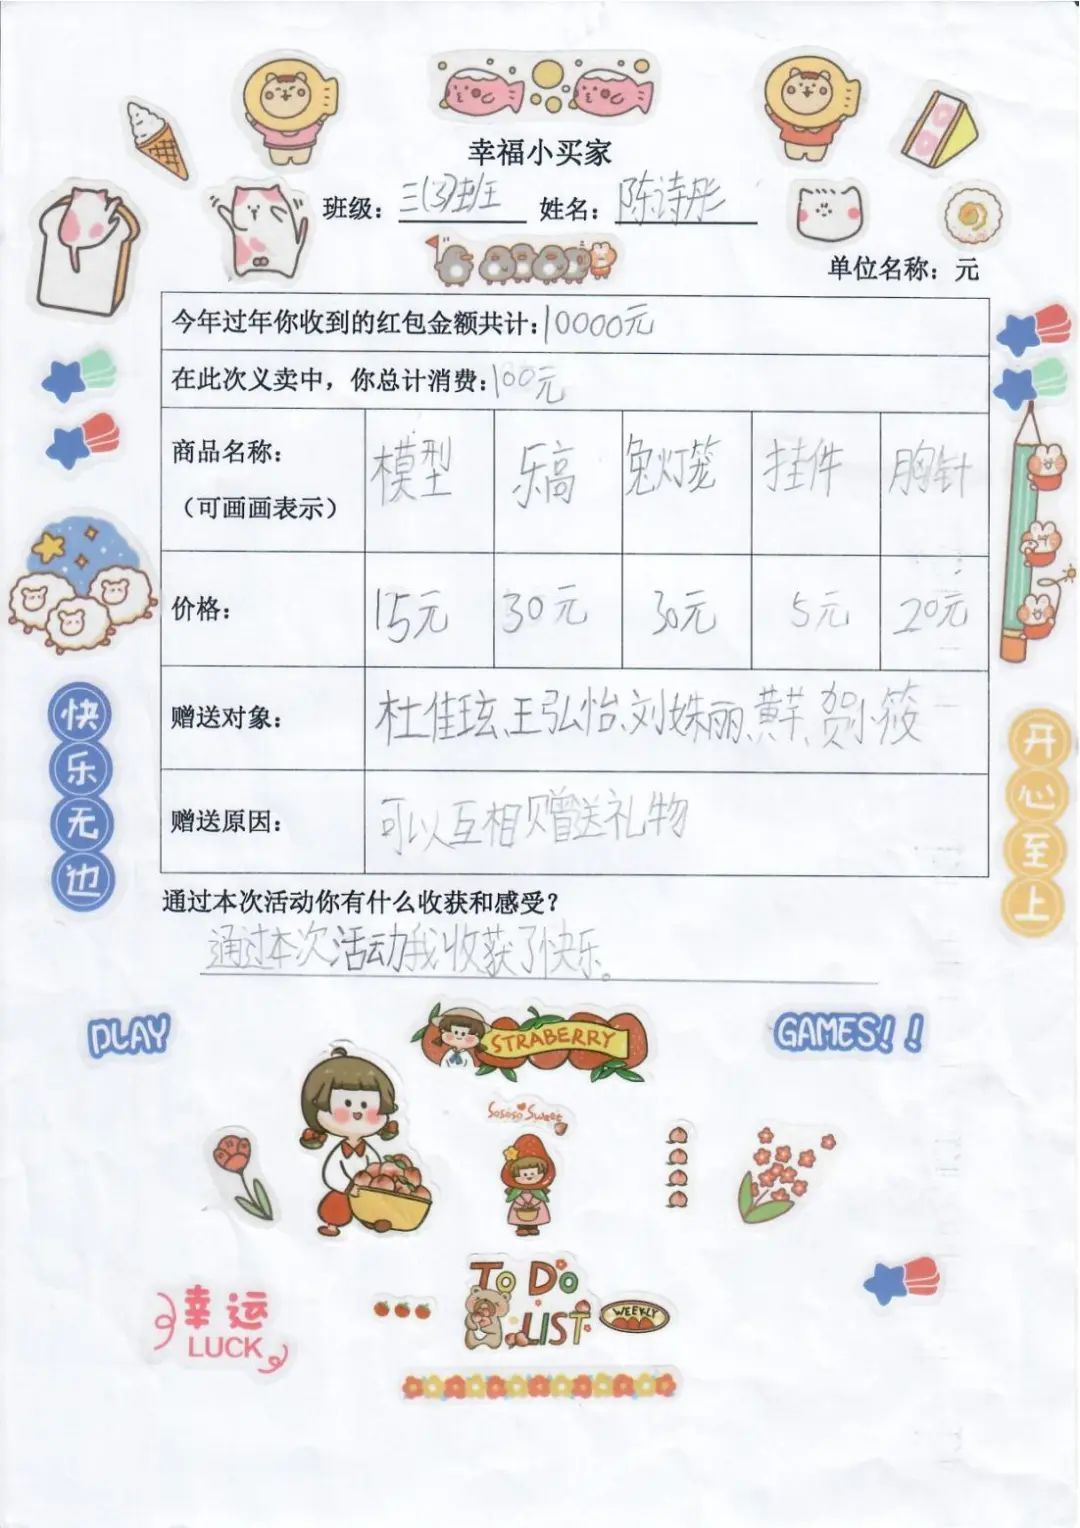 幸福小买家
班级：三(3)班 姓名：陈诗彤
单位名称：元
今年过年你收到的红包金额共计：10000元
在此次义卖中，你总计消费：100元
商品名称：
（可画画表示）
模型 乐高 兔灯笼 挂件 胸针
价格： 15元 30元 30元 5元 20元
赠送对象： 杜佳玹、王弘怡、刘姝丽、黄芊、贺小筱
赠送原因： 可以互相赠送礼物
快乐无边
开心至上
通过本次活动你有什么收获和感受？
通过本次活动我收获了快乐。
PLAY STRABERRY GAMES！！
Sososo Sweet
幸运
LUCK
To Do
LIST
WEEKLY